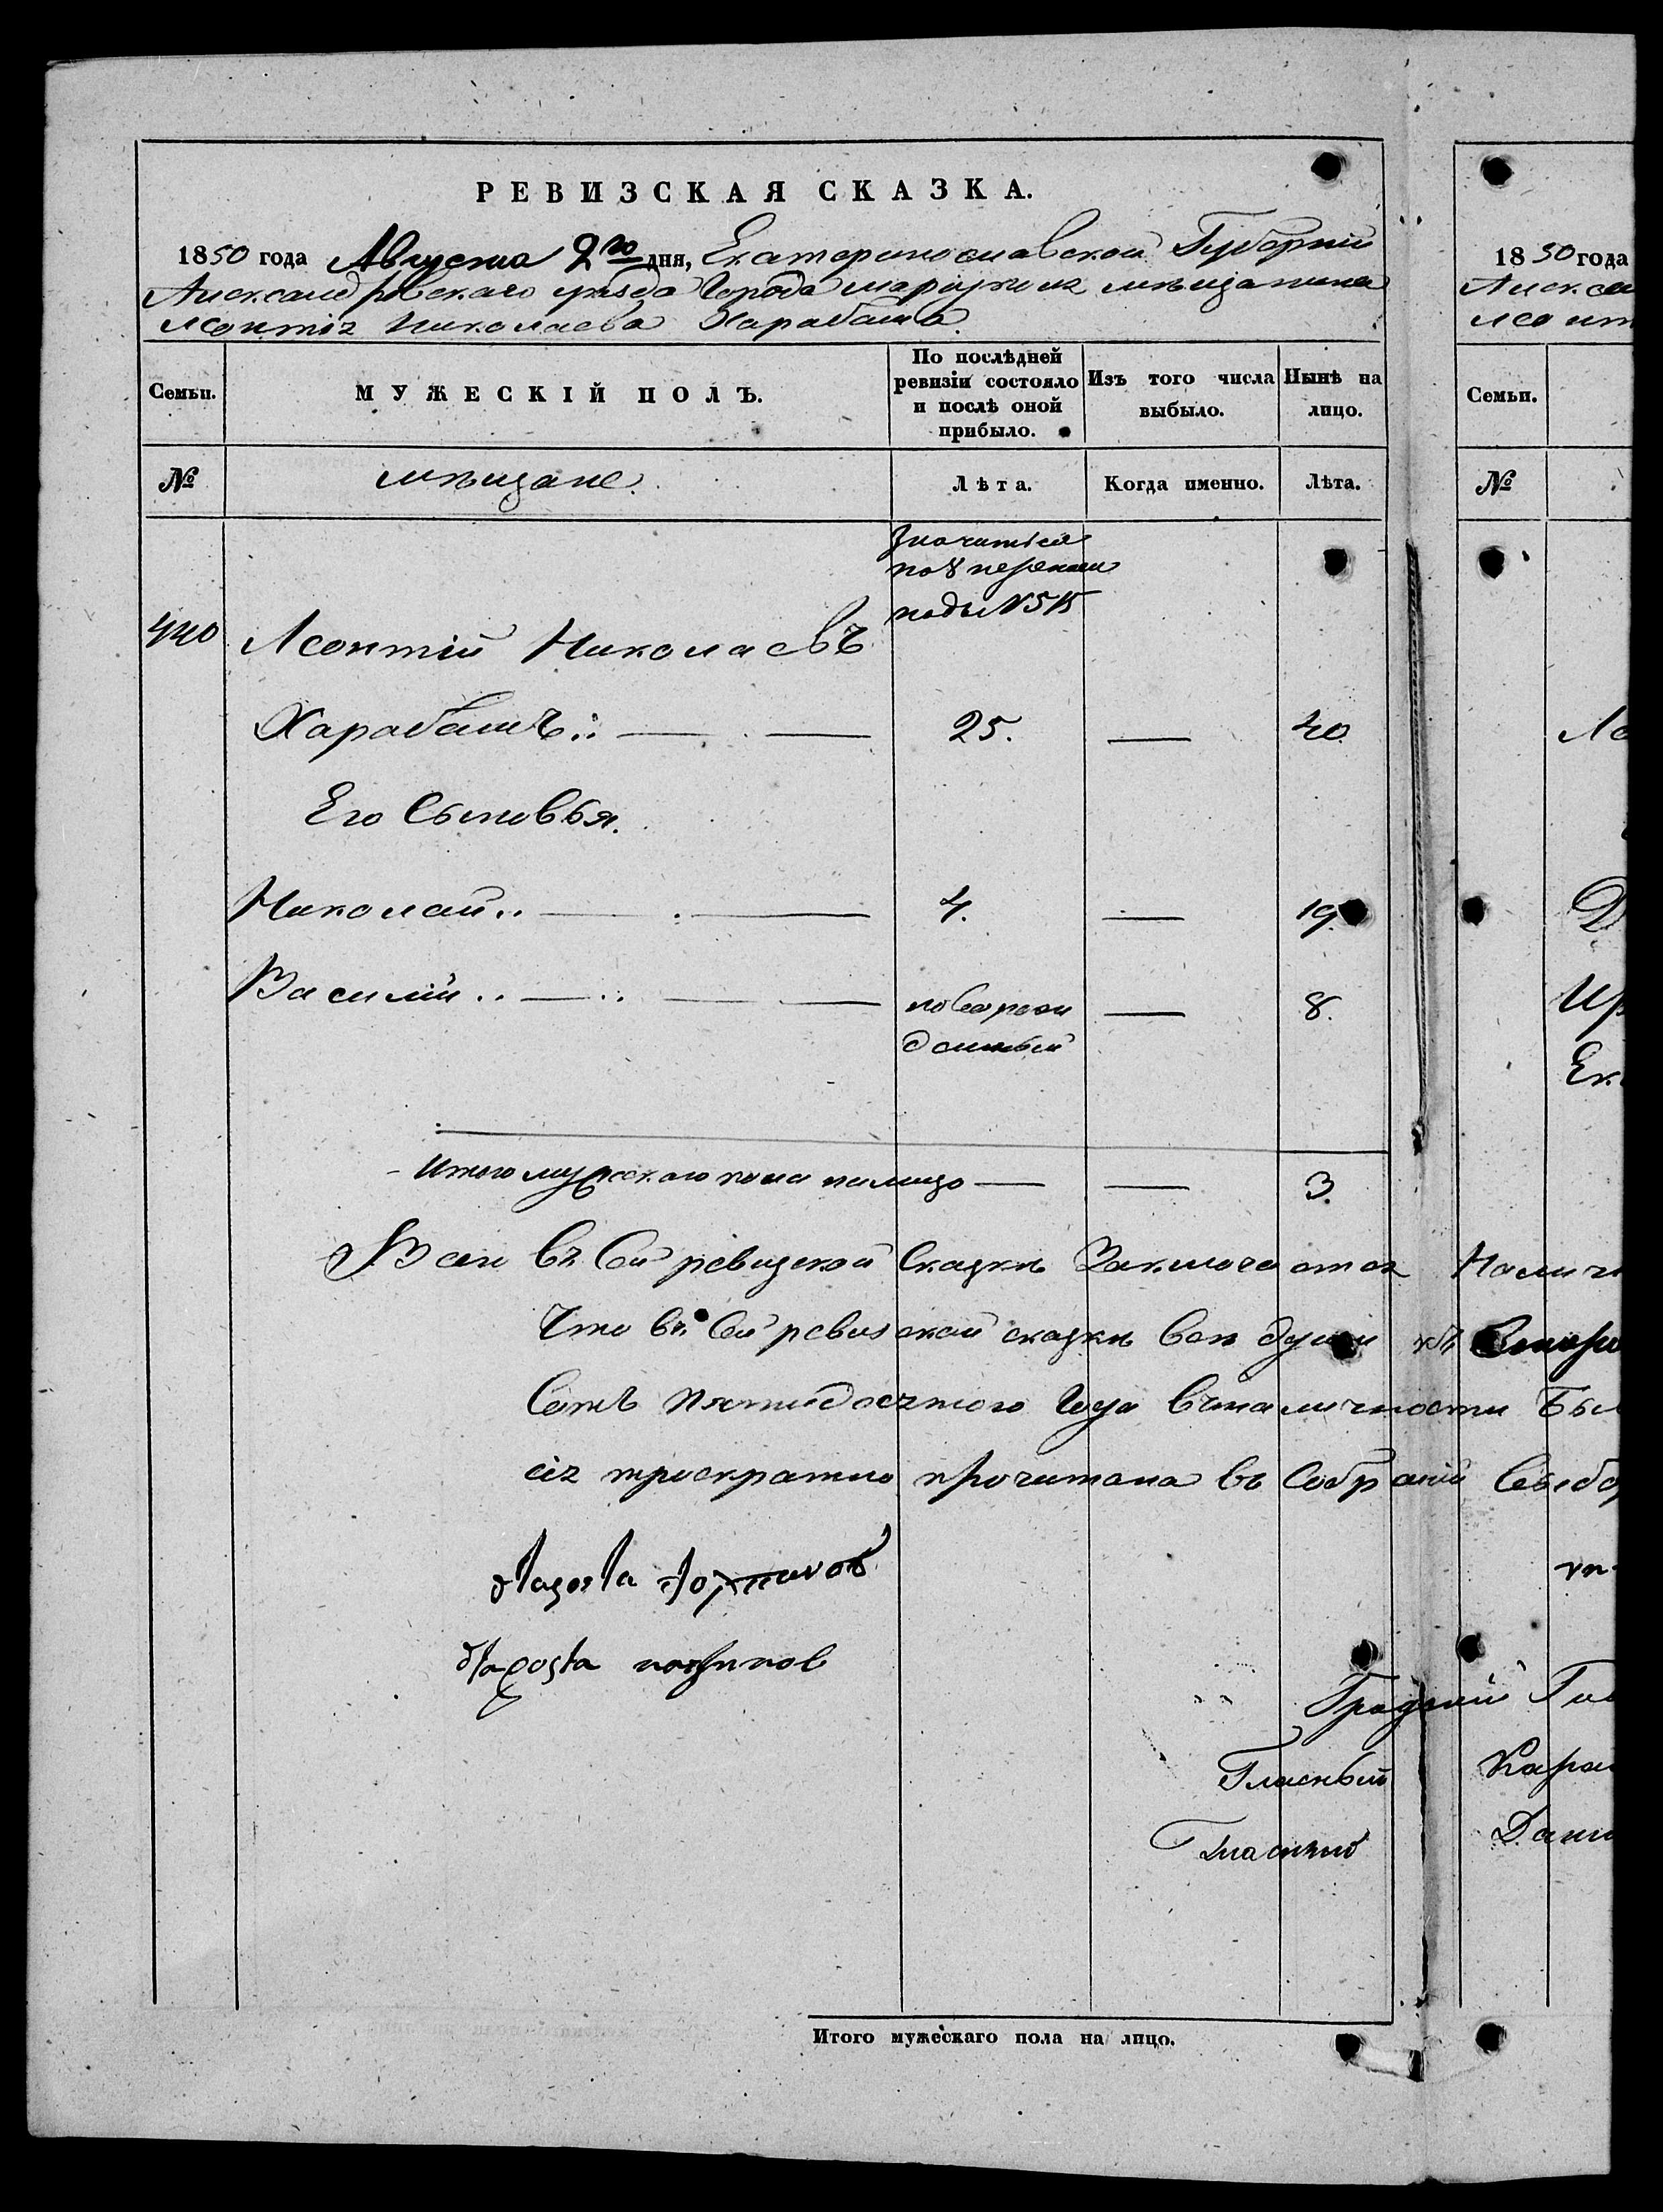 РЕВИЗСКАЯ СКАЗКА.
1850 года Августа 2го дня, Екатеринославской Губерніи
Александровскаго уѣзда Города Маріуполя мѣщанина
Леонтія Николаева Харабаша
Семьи.
МУЖЕСКІЙ ПОЛЪ.
По послѣдней ревизіи состояло и послѣ оной прибыло.
Изъ того числа выбыло.
Нынѣ на лицо.
№
мѣщане.
Лѣта.
Когда именно.
Лѣта.
значится
по 8 переписи
подъ N 515
440 Леонтій Николаевъ
Харабашъ 25. — 40.
Его Сыновья.
Николай 4. — 19.
Василій новорож — 8.
денный
Итого мужескаго пола налицо — — 3.
въ Сей ревизской Сказкѣ Заключается
Что въ Сей ревизской сказкѣ всѣ души
Сотъ пятидесятого Года въ наличности
сія троекратно прочитана въ Собраніи
Градской
Гласный
Гласный
Итого мужескаго пола на лицо.
1850 года
Семьи.
№